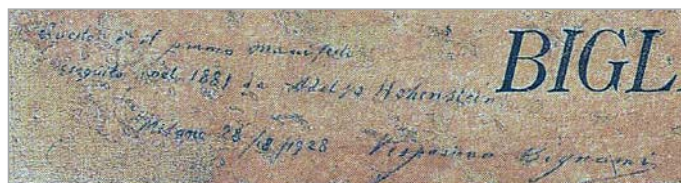 Questo è il primo manifesto
eseguito nel 1881 da Adolfo Hohenstein
BIGL
Milano 28/8/1928 Vespasiano Bignami